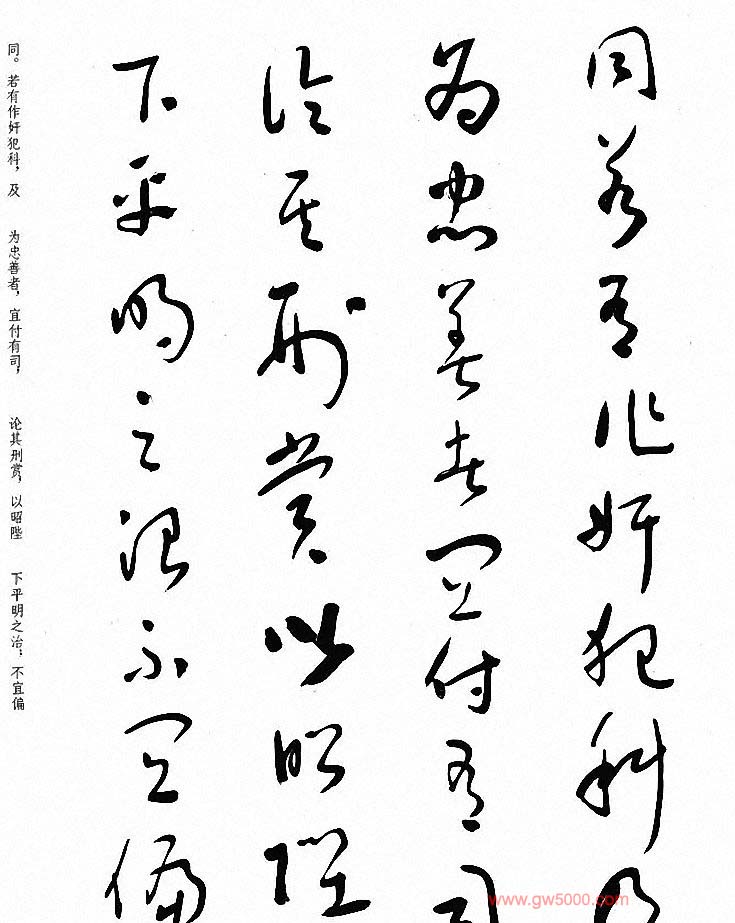 同若有作奸犯科及
为忠善者宜付有司
论其刑赏以昭陛
下平明之治不宜偏
同。若有作奸犯科，及 为忠善者，宜付有司， 论其刑赏，以昭陛 下平明之治；不宜偏
www.gw5000.com